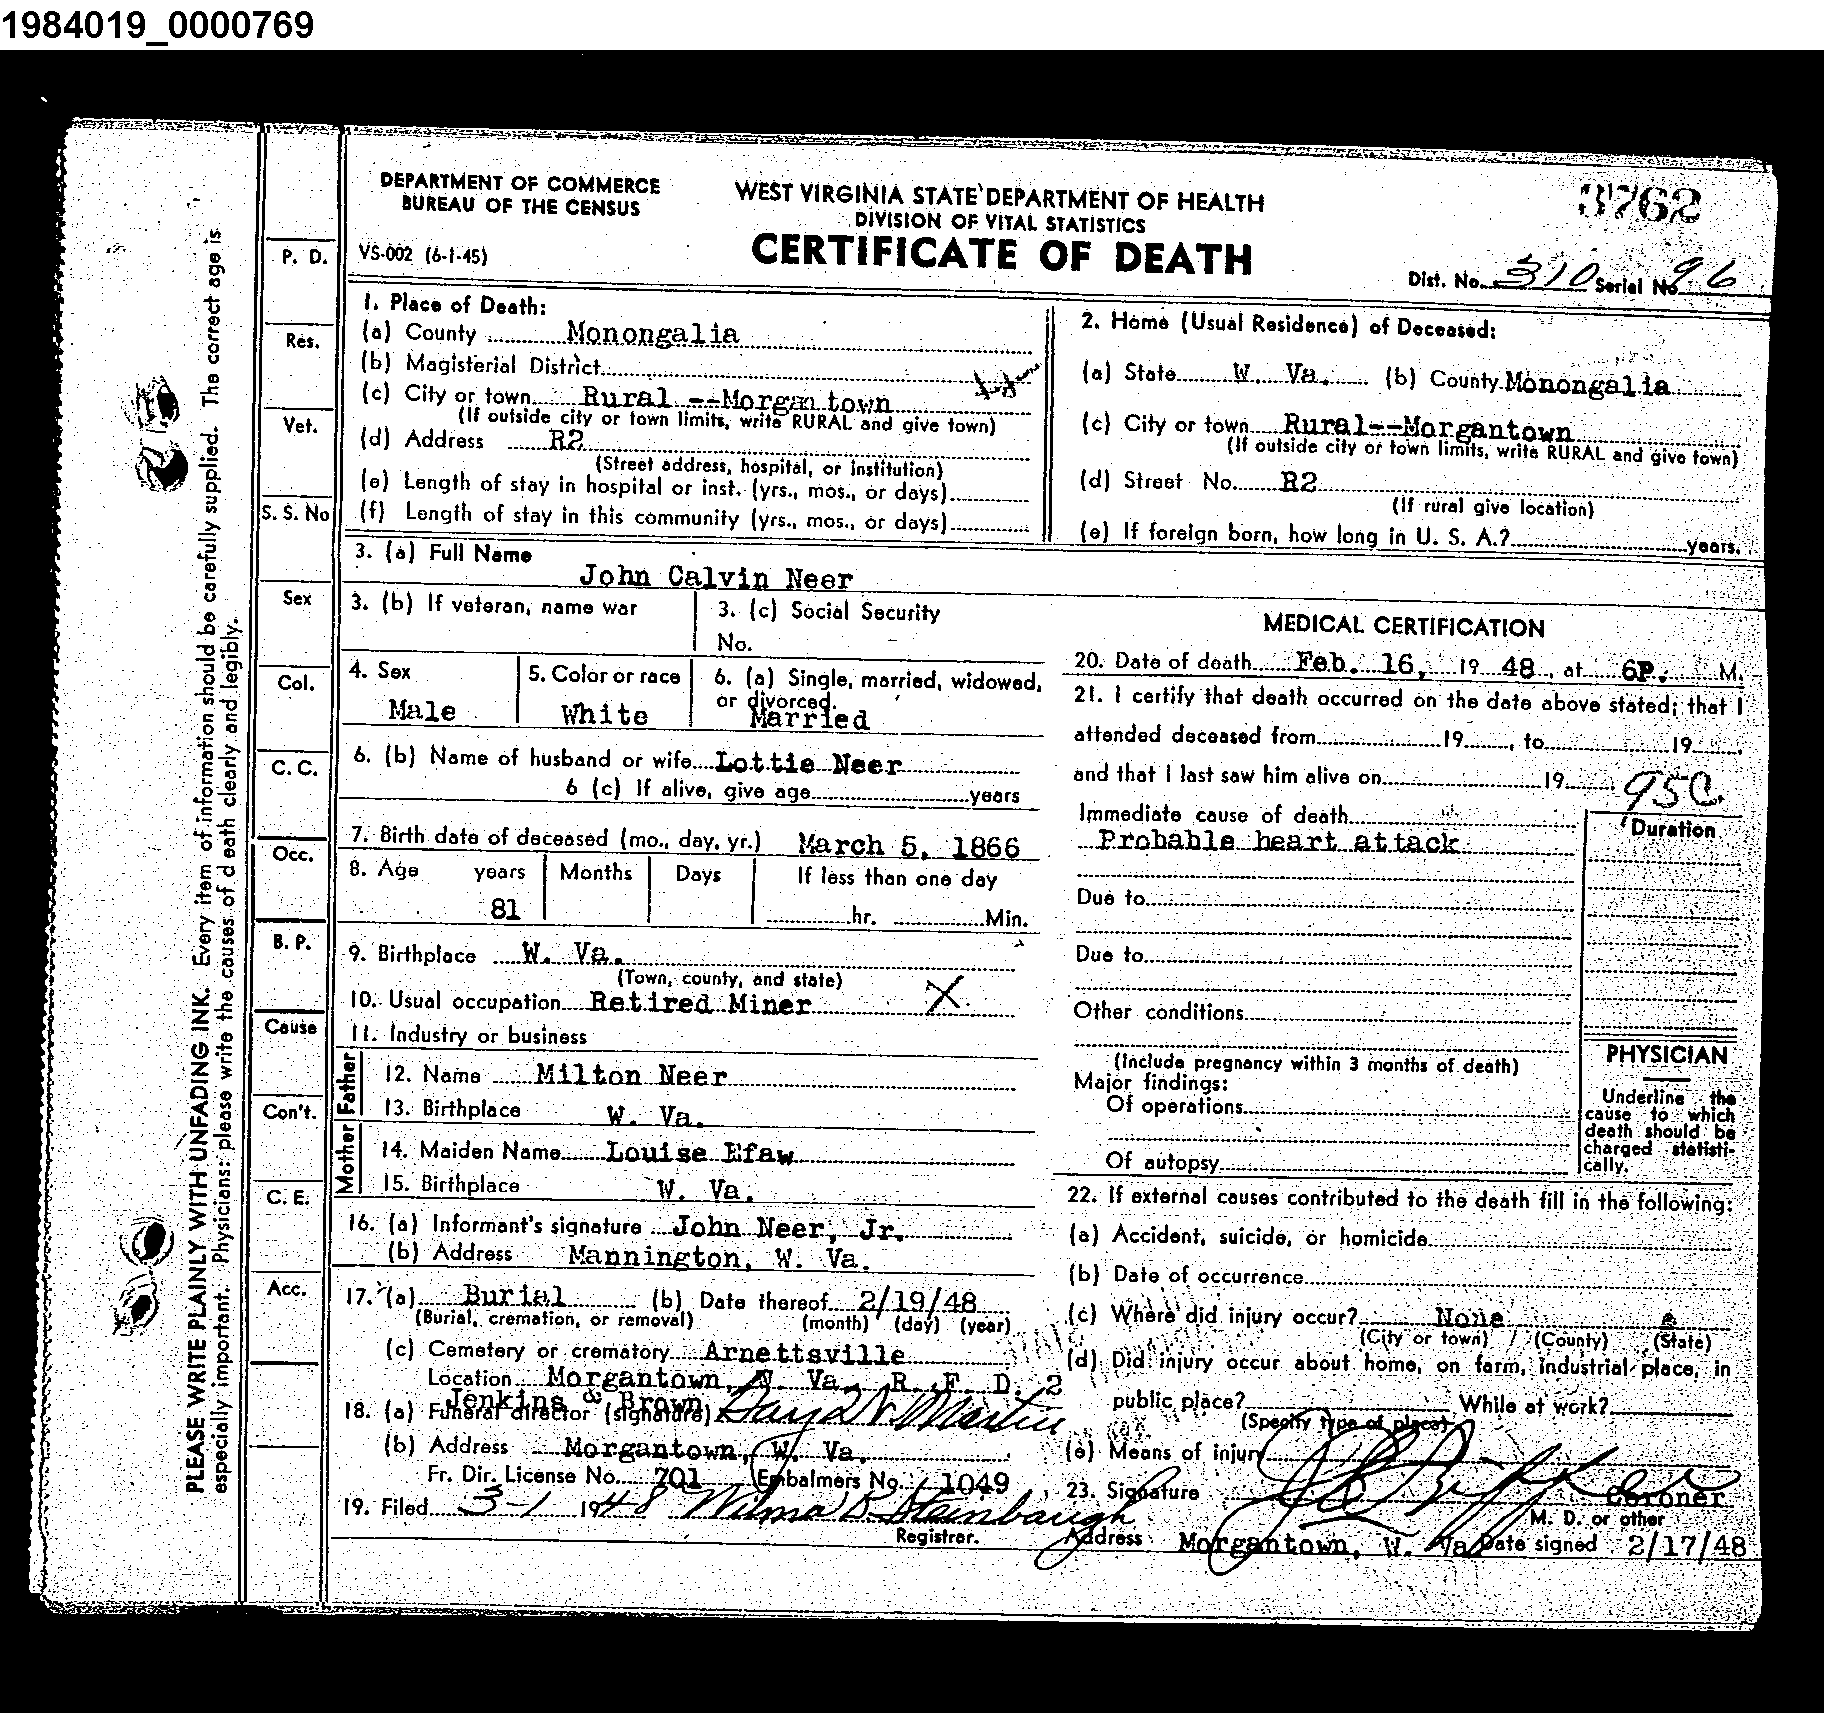 1984019_0000769
DEPARTMENT OF COMMERCE
BUREAU OF THE CENSUS
VS-002 (6-1-45)
WEST VIRGINIA STATE DEPARTMENT OF HEALTH
DIVISION OF VITAL STATISTICS
CERTIFICATE OF DEATH
3762
Dist. No. 310 Serial No. 96
PLEASE WRITE PLAINLY WITH UNFADING INK. Every item of information should be carefully supplied. The correct age is
especially important. Physicians: please write the causes of death clearly and legibly.
P. D.
Res.
Vet.
S. S. No
Sex
Col.
C. C.
Occ.
B. P.
Cause
Con't.
C. E.
Acc.
1. Place of Death:
(a) County Monongalia
(b) Magisterial District
(c) City or town Rural --Morgantown
(If outside city or town limits, write RURAL and give town)
(d) Address R2
(Street address, hospital, or institution)
(e) Length of stay in hospital or inst. (yrs., mos., or days)
(f) Length of stay in this community (yrs., mos., or days)
2. Home (Usual Residence) of Deceased:
(a) State W. Va. (b) County Monongalia
(c) City or town Rural--Morgantown
(If outside city or town limits, write RURAL and give town)
(d) Street No. R2
(If rural give location)
(e) If foreign born, how long in U. S. A.? years.
3. (a) Full Name
John Calvin Neer
3. (b) If veteran, name war
3. (c) Social Security
No.
4. Sex
Male
5. Color or race
White
6. (a) Single, married, widowed,
or divorced.
Married
6. (b) Name of husband or wife Lottie Neer
6 (c) If alive, give age years
7. Birth date of deceased (mo., day, yr.) March 5, 1866
8. Age years Months Days If less than one day
81 hr. Min.
9. Birthplace W. Va.
(Town, county, and state)
10. Usual occupation Retired Miner X
11. Industry or business
Father
12. Name Milton Neer
13. Birthplace W. Va.
Mother
14. Maiden Name Louise Efaw
15. Birthplace W. Va.
16. (a) Informant's signature John Neer, Jr.
(b) Address Mannington, W. Va.
17. (a) Burial (b) Date thereof 2/19/48
(Burial, cremation, or removal) (month) (day) (year)
(c) Cemetery or crematory Arnettsville
Location Morgantown, W. Va. R. F. D. 2
Jenkins & Brown
18. (a) Funeral director (signature) Martin
(b) Address Morgantown, W. Va.
Fr. Dir. License No. 701 Embalmers No. 1049
19. Filed 3-1 1948 Wilma B. Steinbaugh
Registrar.
MEDICAL CERTIFICATION
20. Date of death Feb. 16, 19 48, at 6P. M.
21. I certify that death occurred on the date above stated; that I
attended deceased from 19 , to 19 ,
and that I last saw him alive on 19
95C.
Immediate cause of death
Probable heart attack
Duration
Due to
Due to
Other conditions
(Include pregnancy within 3 months of death)
Major findings:
Of operations
Of autopsy
PHYSICIAN
Underline the
cause to which
death should be
charged statisti-
cally.
22. If external causes contributed to the death fill in the following:
(a) Accident, suicide, or homicide
(b) Date of occurrence
(c) Where did injury occur? None
(City or town) (County) (State)
(d) Did injury occur about home, on farm, industrial place, in
public place? While at work?
(Specify type of place)
(e) Means of injury
23. Signature
Coroner
M. D. or other
Address Morgantown, W. Va Date signed 2/17/48